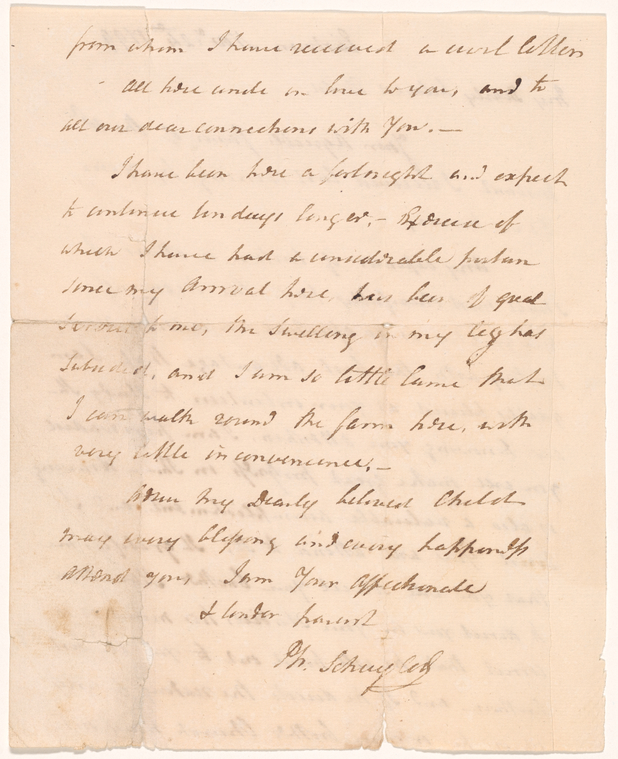 from whom I have received a civil letter
All here unite in love to you, and to
all our dear connections with You. —
I have been here a fortnight and expect
to continue ten days longer, – Exercise of
which I have had a considerable portion
since my Arrival here, has been of great
Service to me, the swelling in my leg has
subsided, and I am so little lame that
I can walk round the farm here, with
very little inconvenience, –
Adieu my Dearly beloved Child
may every blessing and every happiness
attend you I am Your affectionate
& tender parent
Ph. Schuyler